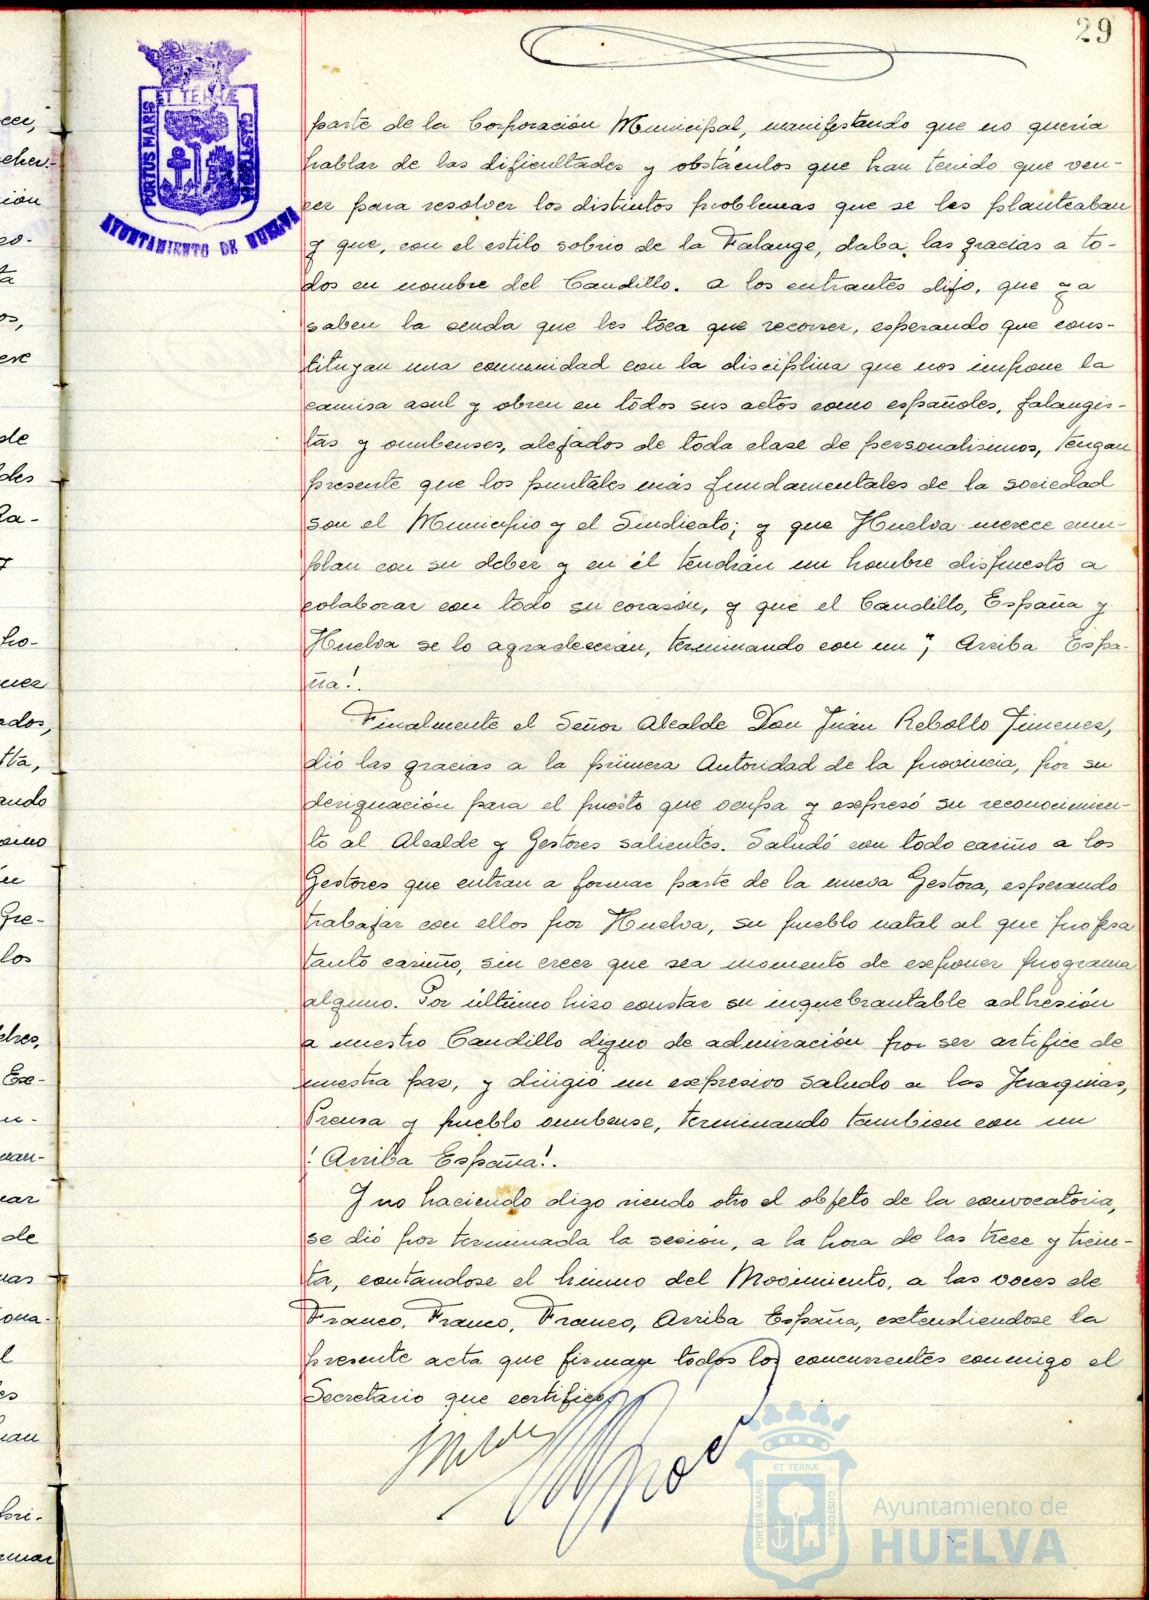 29
ET TERRÆ
PORTUS MARIS
CUSTODIA
AYUNTAMIENTO DE HUELVA
parte de la Corporación Municipal, manifestando que no quería
hablar de las dificultades y obstáculos que han tenido que ven-
cer para resolver los distintos problemas que se les planteaban
y que, con el estilo sobrio de la Falange, daba las gracias a to-
dos en nombre del Caudillo. a los entrantes dijo, que ya
saben la senda que les toca que recorrer, esperando que cons-
tituyan una comunidad con la disciplina que nos impone la
camisa asul y obren en todos sus actos como españoles, falangis-
tas y onubenses, alejados de toda clase de personalismos, tengan
presente que los puntales más fundamentales de la sociedad
son el Municipio y el Sindicato; y que Huelva merece cum-
plan con su deber y en él tendrán un hombre dispuesto a
colaborar con todo su corasón, y que el Caudillo, España y
Huelva se lo agradecerán, terminando con un "¡ Arriba Espa-
ña!.
Finalmente el Señor Alcalde Don Juán Rebollo Jimenes,
dió las gracias a la primera Autoridad de la provincia, por su
designación para el puesto que ocupa y expresó su reconocimien-
to al Alcalde y Gestores salientes. Saludó con todo cariño a los
Gestores que entran a formar parte de la nueva Gestora, esperando
trabajar con ellos por Huelva, su pueblo natal al que profesa
tanto cariño, sin creer que sea momento de exponer programa
alguno. Por último hiso constar su inquebrantable adhesión
a nuestro Caudillo digno de admiración por ser artifice de
nuestra pas, y dirigió un expresivo saludo a las Jerarquias,
Prensa y pueblo onubense, terminando tambien con un
! Arriba España!.
Y no haciendo digo siendo otro el objeto de la convocatoria,
se dió por terminada la sesión, a la hora de las trece y trein-
ta, cantandose el himno del Movimiento, a las voces de
Franco, Franco, Franco, Arriba España, extendiendose la
presente acta que firman todos los concurrentes conmigo el
Secretario que certifico.
ET TERRÆ
PORTUS MARIS
CUSTODIA
Ayuntamiento de
HUELVA